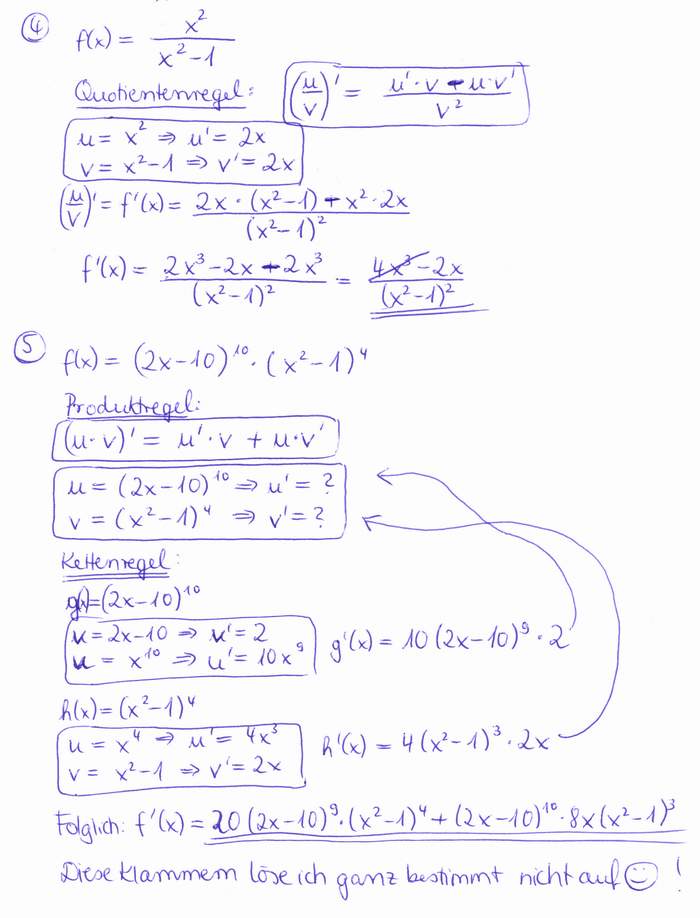 ④ f(x) = x² / (x²-1)
Quotientenregel: (u/v)' = (u'·v - u·v') / v²
u = x² ⇒ u' = 2x
v = x²-1 ⇒ v' = 2x
(u/v)' = f'(x) = (2x·(x²-1) - x²·2x) / (x²-1)²
f'(x) = (2x³-2x-2x³) / (x²-1)² = (4x³-2x) / (x²-1)²
⑤ f(x) = (2x-10)¹⁰·(x²-1)⁴
Produktregel:
(u·v)' = u'·v + u·v'
u = (2x-10)¹⁰ ⇒ u' = ?
v = (x²-1)⁴ ⇒ v' = ?
Kettenregel:
g(x)=(2x-10)¹⁰
v = 2x-10 ⇒ v' = 2
u = x¹⁰ ⇒ u' = 10x⁹ g'(x) = 10(2x-10)⁹·2
h(x) = (x²-1)⁴
u = x⁴ ⇒ u' = 4x³
v = x²-1 ⇒ v' = 2x h'(x) = 4(x²-1)³·2x
Folglich: f'(x) = 20(2x-10)⁹·(x²-1)⁴+(2x-10)¹⁰·8x(x²-1)³
Diese Klammern löse ich ganz bestimmt nicht auf ☺ !